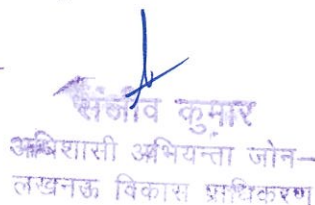 संजीव कुमार
अधिशासी अभियन्ता जोन–
लखनऊ विकास प्राधिकरण